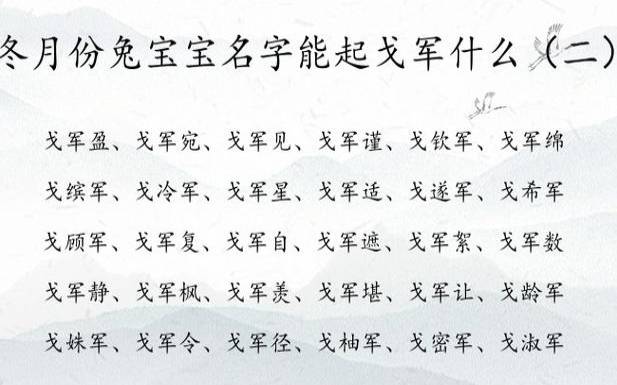 冬月份兔宝宝名字能起戈军什么（二）
戈军盈、戈军宛、戈军见、戈军谨、戈钦军、戈军绵
戈缤军、戈冷军、戈军星、戈军适、戈遂军、戈希军
戈顾军、戈军复、戈军自、戈军遮、戈军絮、戈军数
戈军静、戈军枫、戈军羡、戈军堪、戈军让、戈龄军
戈姝军、戈军令、戈军径、戈柚军、戈密军、戈淑军